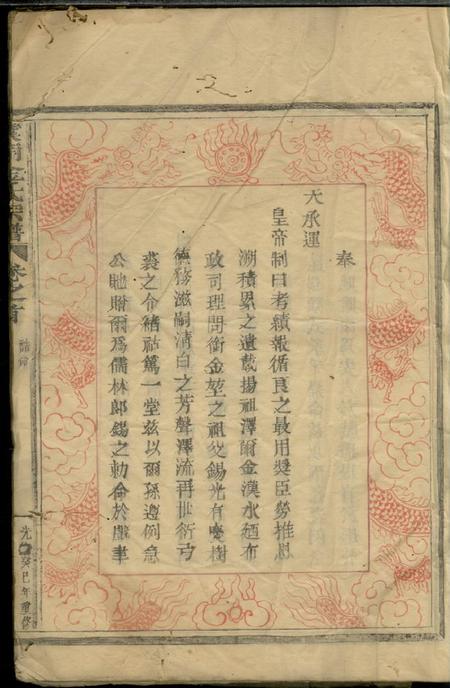 奉
天承運
皇帝制曰考績報循良之最用奬臣勞推恩
溯積累之遺載揚祖澤爾金漢水廼布
政司理問銜金堃之祖父錫光有慶樹
德務滋嗣清白之芳聲澤流再世衍弓
裘之令緒祜篤一堂兹以爾孫遵例急
公貤贈爾爲儒林郎錫之勅命於戲聿
氏宗譜
卷之首
誥命
光緒癸巳年重修